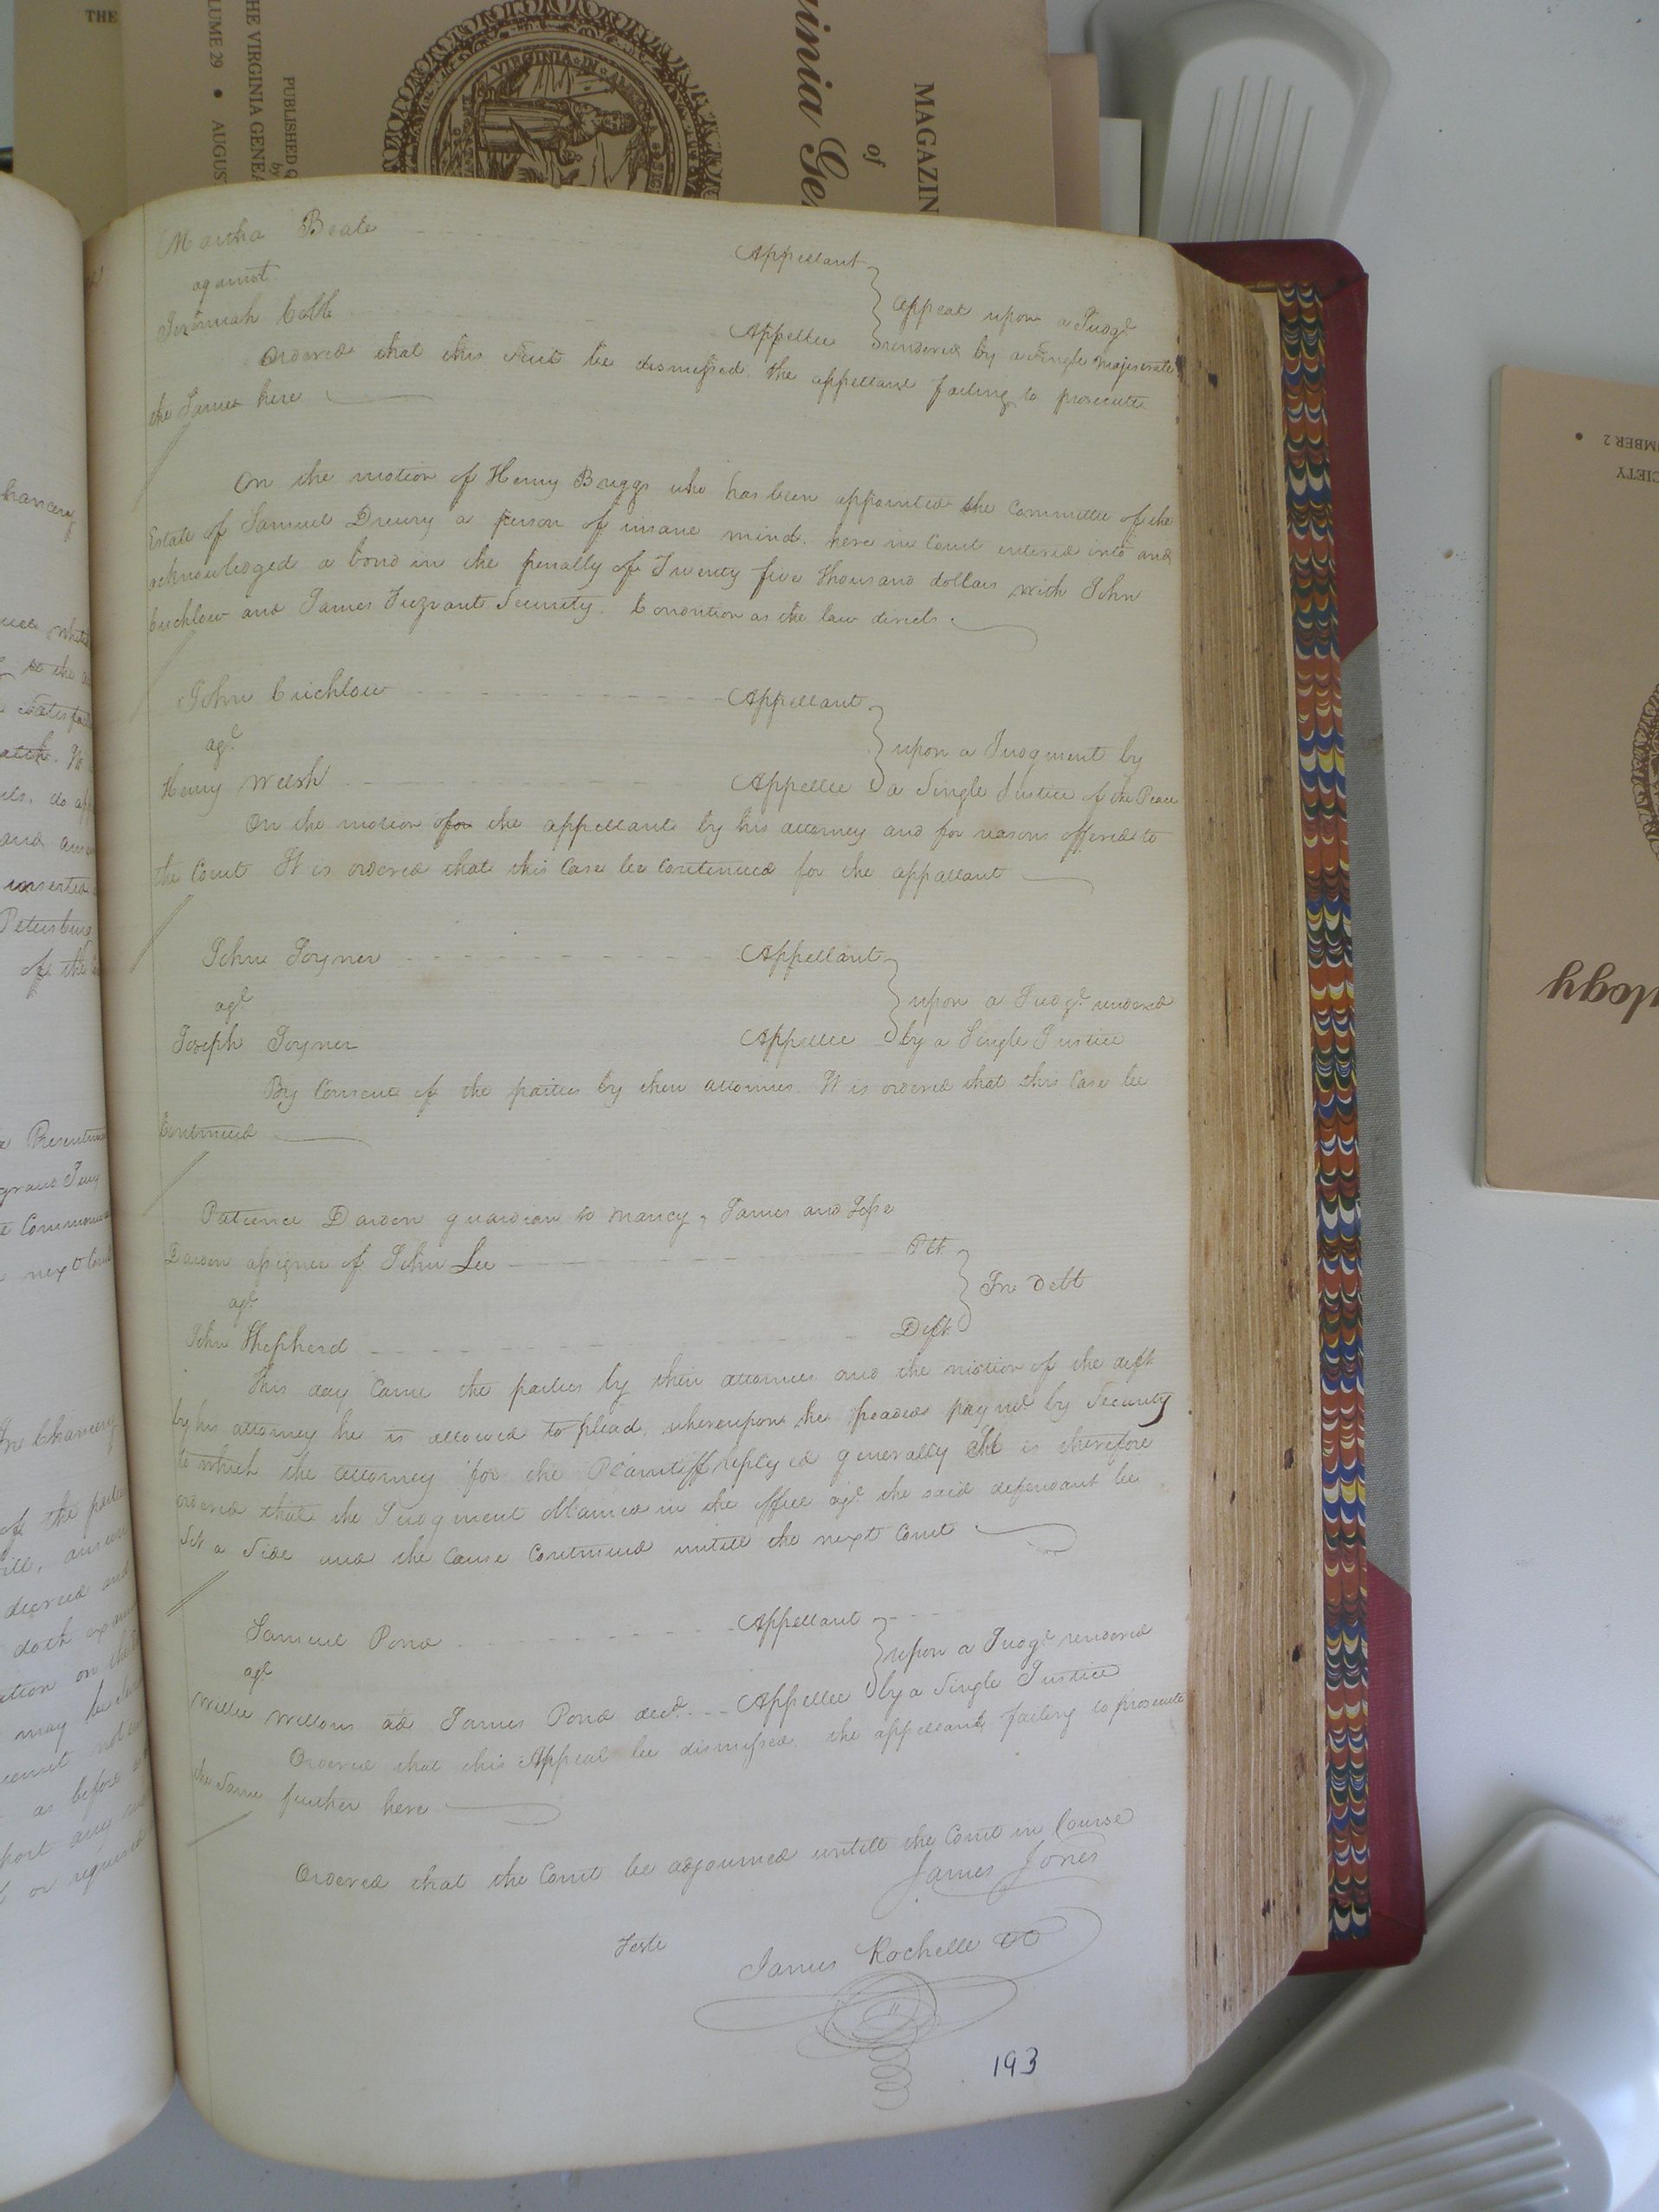 THE
HE VIRGINIA GENEA
LUME 29 • AUGUST
PUBLISHED Q
by
VIRGINIA IN
MAGAZIN
of
inia Ge
MBER 2 •
CIETY
logy
hancery
Petersburg
of the
grand Jury
Commonw
next Cou
In Chancery
of the partie
decreed and
doth
may be
as before
port any
or required
Martha Beale Appellant
against
Appeal upon a Judgt
Jeremiah Cobb Appellee rendered by a single majestrate
Ordered that this Suit be dismissed. the appellant failing to prosecute
the Same here
On the motion of Henry Briggs who has been appointed the Committee of the
Estate of Samuel Drewry a person of insane mind. here in Court entered into and
acknowledged a bond in the penalty of Twenty five thousand dollars with John
Crichlow and James Security. Condition as the law directs.
John Crichlow Appellant
agt
upon a Judgment by
Henry Welsh Appellee a Single Justice of the Peace
On the motion of the appellant by his attorney and for reasons offered to
the Court It is ordered that this Case be Continued for the appellant
John Joyner Appellant
agt
upon a Judgt rendered
Joseph Joyner Appellee by a Single Justice
By Consent of the parties by their attornies. It is ordered that this Case be
Continued
Patience Darden guardian to Mancy, James and Jesse
Darden assignee of John Lee Plt
agt
In Debt
John Shepherd Deft
This day Came the parties by their attornies and the motion of the deft
by his attorney he is allowed to plead, whereupon he pleaded paymt by Security
to which the attorney for the Plaintiff replyed generally It is therefore
ordered that the Judgment Obtained in the office agt the said defendant be
Set a Side and the Cause Continued untill the next Court
Samuel Pond Appellant
agt
upon a Judgt rendered
Willie ad James Pond decd. Appellee by a Single Justice
Ordered that this Appeal be dismissed. the appellant failing to prosecute
the Same further here
Ordered that the Court be adjourned untill the Court in Course
James Jones
Teste
James Rochelle
193